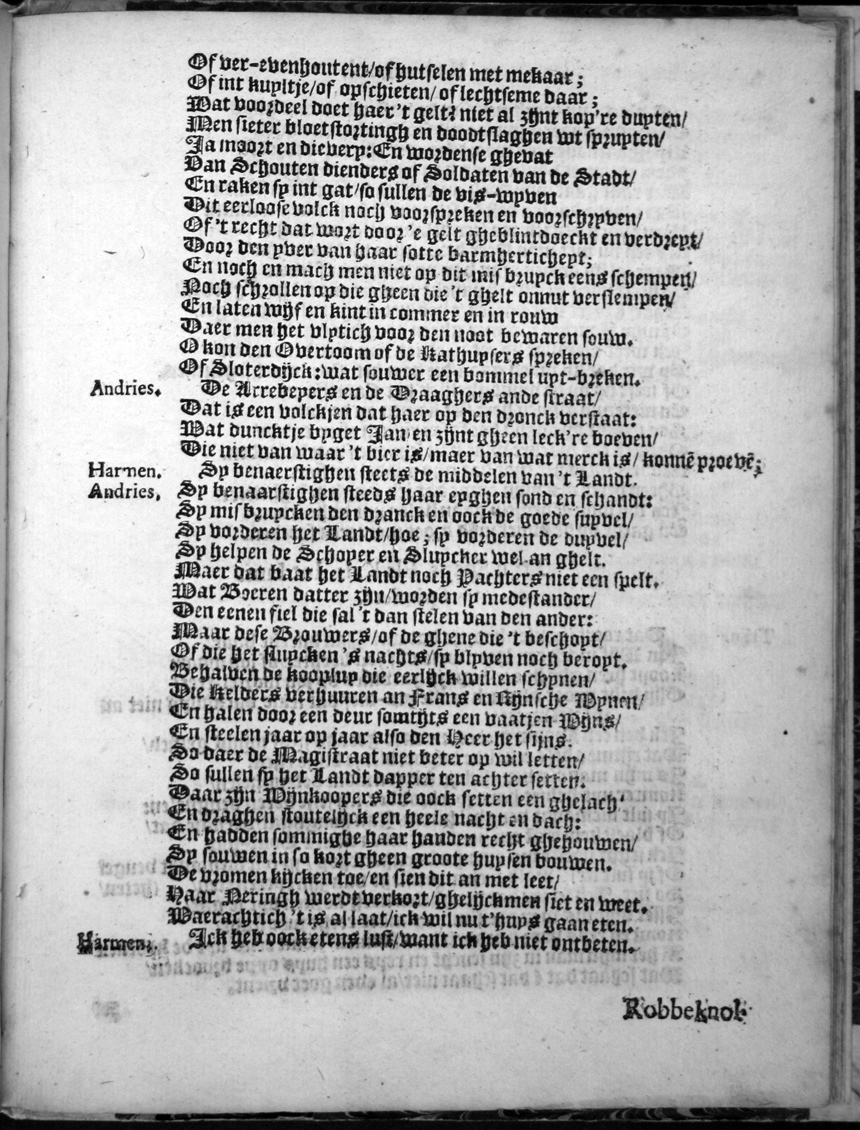 Of ver-evenhoutent/of hutselen met mekaar;
Of int kuyltje/of opschieten/ of lechtseme daar;
Wat voordeel doet haer 't gelt? niet al zijnt kop're duyten/
Men sieter bloetstortingh en doodtslaghen wt spruyten/
Ja moort en dievery: En wordense ghevat
Van Schouten dienders of Soldaten van de Stadt/
En raken sy int gat/so sullen de vis-wyven
Dit eerloose volck noch voorspreken en voorschryven/
Of 't recht dat wort door 'e gelt gheblintdoeckt en verdreyt/
Door den yver van haar sotte barmherticheyt;
En noch en mach men niet op dit misbruyck eens schempen/
Noch schrollen op die gheen die 't ghelt onnut verslempen/
En laten wijf en kint in commer en in rouw
Daer men het vlytich voor den noot bewaren souw.
O kon den Overtoom of de Kathuysers spreken/
Of Sloterdijck: wat souwer een bommel uyt-breken.
Andries. De Arrebeyers en de Draaghers ande straat/
Dat is een volckjen dat haer op den dronck verstaat:
Wat duncktje byget Jan en zijnt gheen leck're boeven/
Die niet van waar 't bier is/maer van wat merck is/ konnē proevē;
Harmen. Sy benaerstighen steets de middelen van 't Landt.
Andries. Sy benaarstighen steeds haar eyghen sond en schandt:
Sy misbruycken den dranck en oock de goede suyvel/
Sy vorderen het Landt/hoe; sy vorderen de duyvel/
Sy helpen de Schoper en Sluycker wel an ghelt.
Maer dat baat het Landt noch Pachters niet een spelt.
Wat Boeren datter zijn/worden sy medestander/
Den eenen fiel die sal 't dan stelen van den ander:
Maar dese Brouwers/of de ghene die 't beschoyt/
Of die het sluycken 's nachts/sy blyven noch beroyt.
Behalven de kooplup die eerlijck willen schynen/
Die Kelders verhuuren an Frans en Rijnsche Wynen/
En halen door een deur somtijts een vaatjen Wijns/
En steelen jaar op jaar also den Heer het sijns.
So daer de Magistraat niet beter op wil letten/
So sullen sy het Landt dapper ten achter setten.
Daar zijn Wijnkoopers die oock setten een ghelach
En draghen stoutelijck een heele nacht en dach:
En hadden sommighe haar handen recht ghehouwen/
Sy souwen in so kort gheen groote huysen bouwen.
De vromen kijcken toe/en sien dit an met leet/
Haar Neringh werdt verkort/ghelijckmen siet en weet.
Waerachtich 't is al laat/ick wil nu t'huys gaan eten.
Harmen. Ick heb oock etens lust/want ick heb niet ontbeten.
Robbeknol